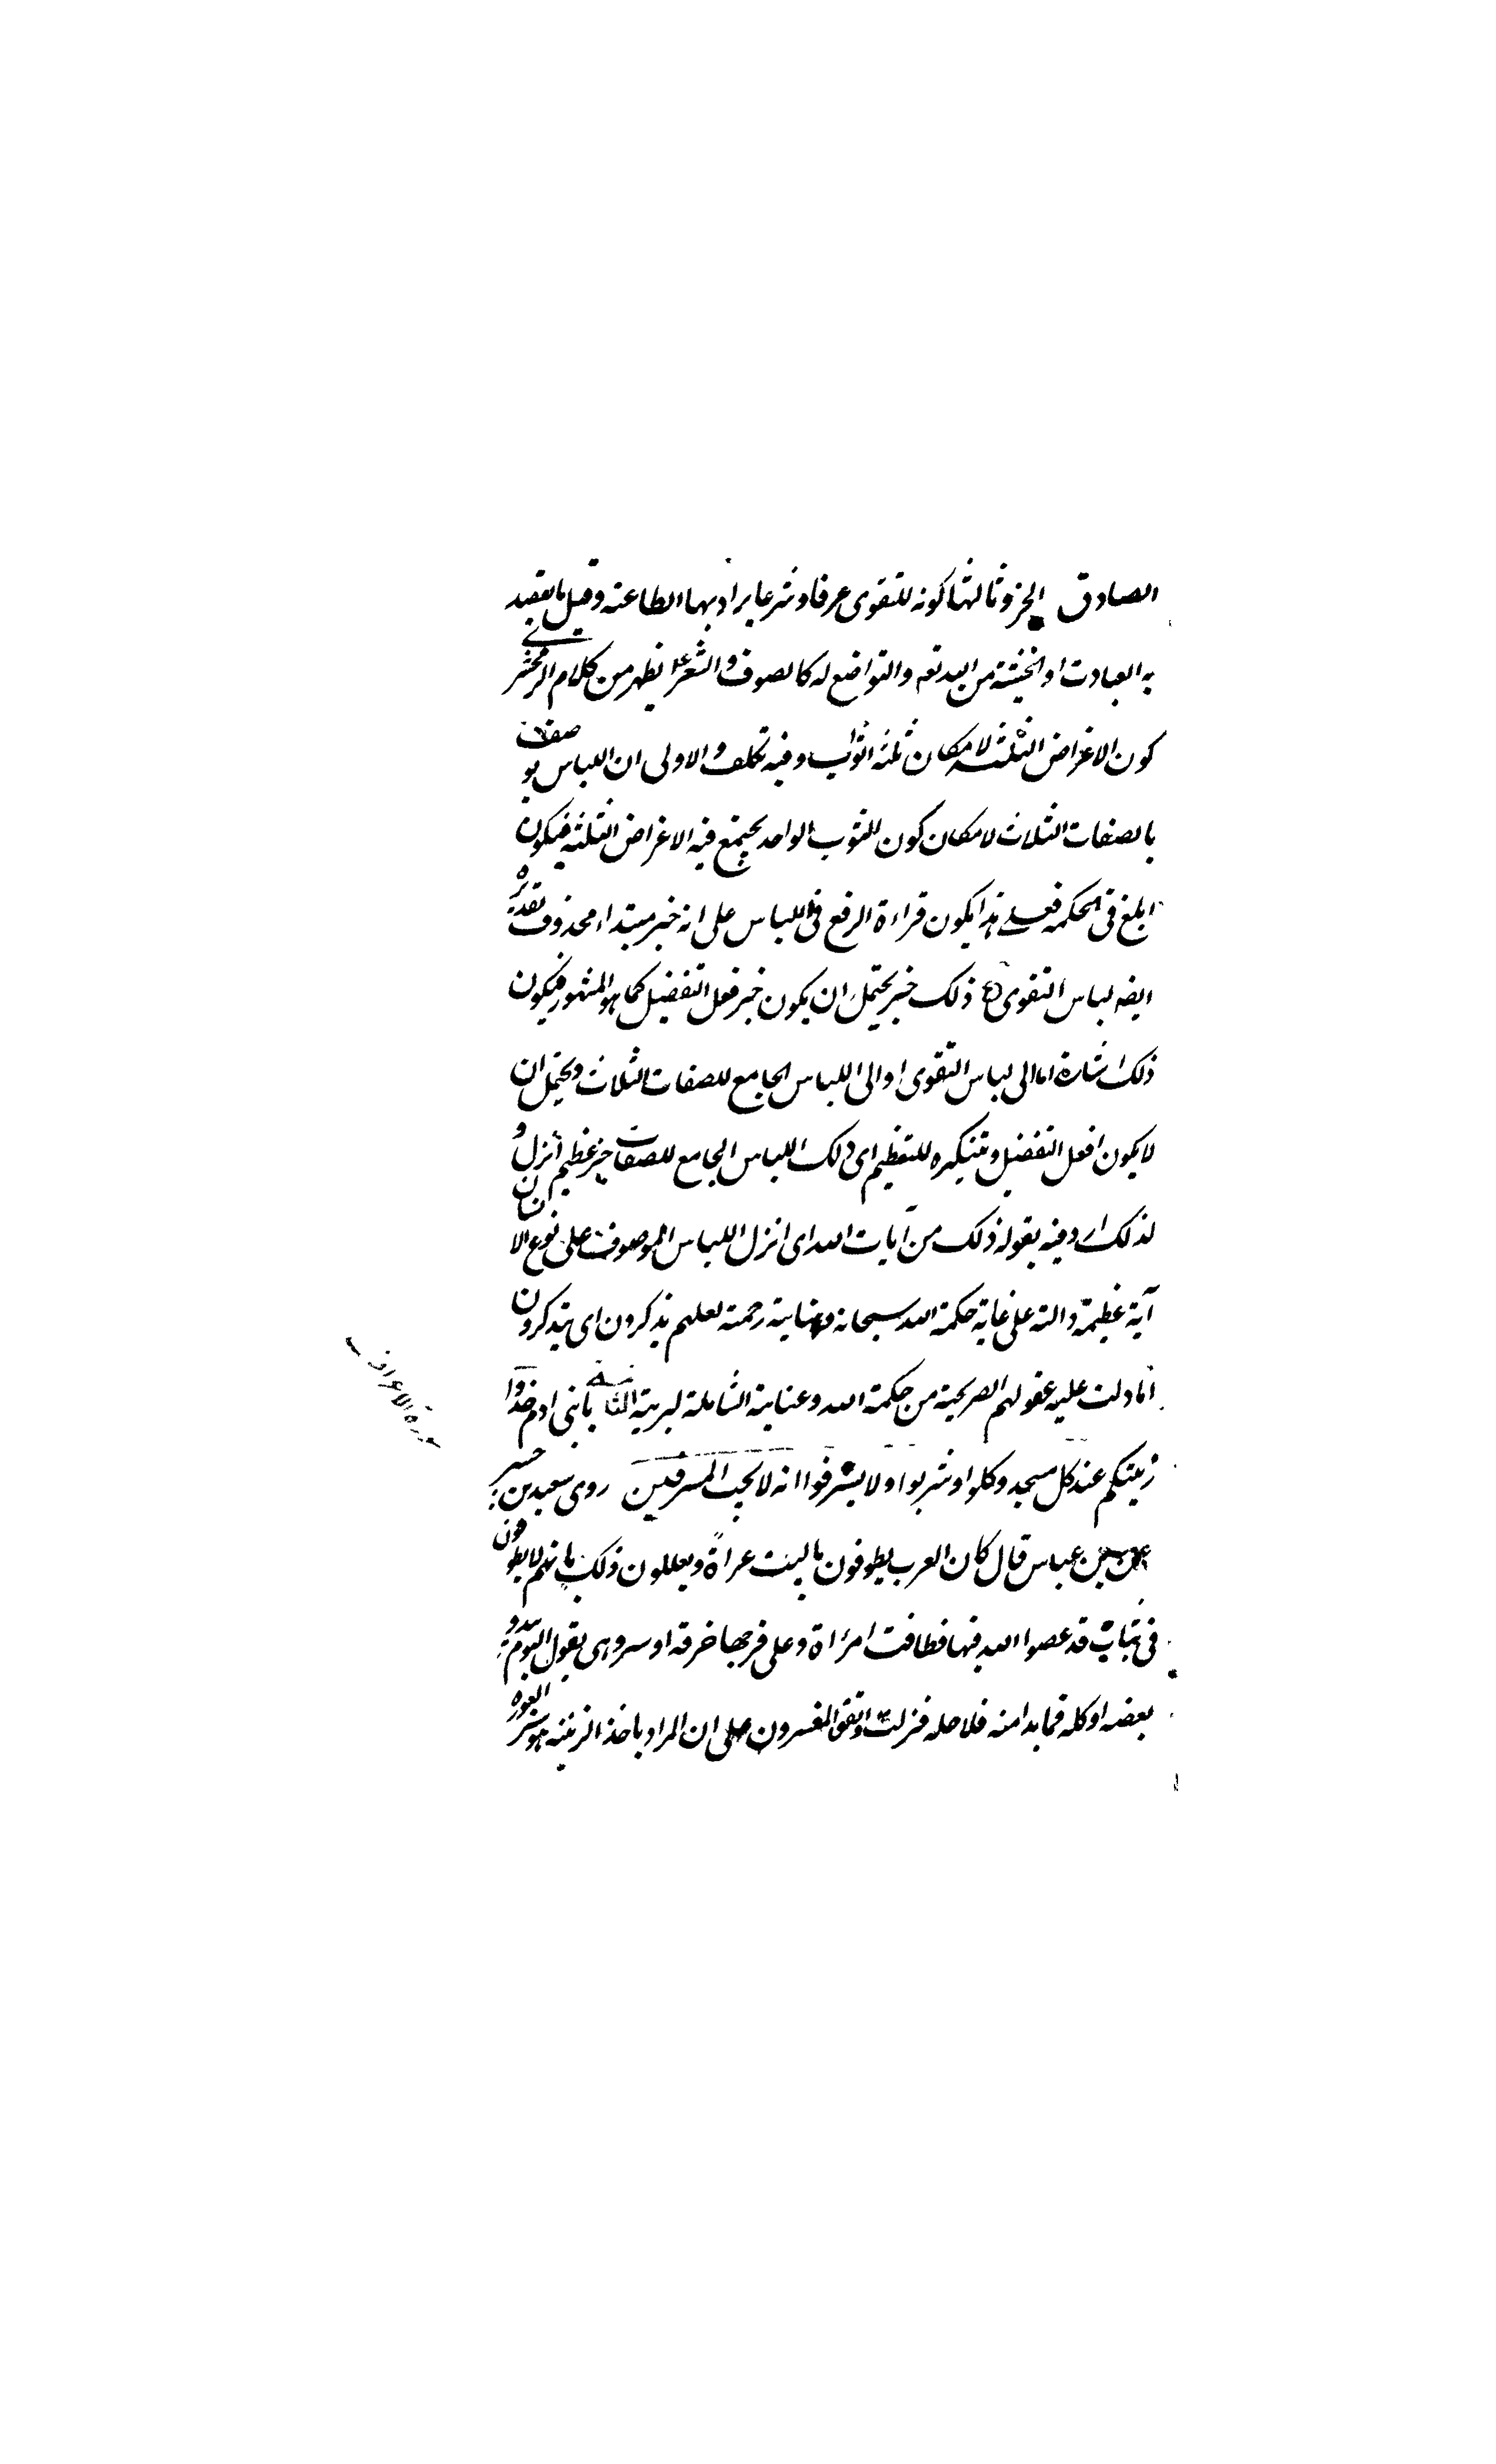 الصادق الخز وثالثها كونه للتقوى عرفا وشرعا يراد بها الطاعة وقيل ما يقصد
به العبادت او الخشية من الله تعه والتواضع له كالصوف والشعر يظهر من كلام الزمخشري
كون الاغراض الثلثة لامكان ثلثة اثواب وفيه تكلف والاولى ان اللباس يوصف
بالصفات الثلاث لامكان كون الثوب الواحد يجتمع فيه الاغراض الثلثه فيكون
ابلغ فى الحكمه فعلى هذا يكون قراءة الرفع فى اللباس على انه خبر مبتداء محذوف تقديره
ايضه لباس التقوى ذلك خير يحتمل ان يكون خير فعل التفضيل كما هو المشهور فيكون
ذلك اشارة اما الى لباس التقوى او الى اللباس الجامع للصفات الثلاث ويحتمل ان
لا يكون افعل التفضيل وتنكيره للتعظيم اى ذلك اللباس الجامع للصفات خير عظيم أنزل و
لذلك اردفه بقوله ذلك من آيات الله اى انزل اللباس الموصوف على نوع الانسان
آية عظيمة دالة على غاية حكمة الله سبحانه ونهاية رحمته لعلهم يذكرون اى يتذكرون
ما دلت عليه عقولهم الصريحة من حكمة الله وعناية الشاملة لبريته يا بنى ادم خذوا
زينتكم عند كل مسجد وكلوا وشربوا ولا تسرفوا انه لا يحب المسرفين روى سعيد بن جبير
عن بن عباس قال كان العرب يطوفون بالبيت عراة ويعللون ذلك بانهم لا يطوفون
فى ثياب قد عصوا الله فيها فطافت امراة وعلى فرجها خرقه او سير وهى يقول اليوم يبدو
بعضه او كله فما بدا منه فلا احله فنزلت واتفق المفسرون على ان المراد باخذ الزينه هو ستر العورة
سورة الاعراف